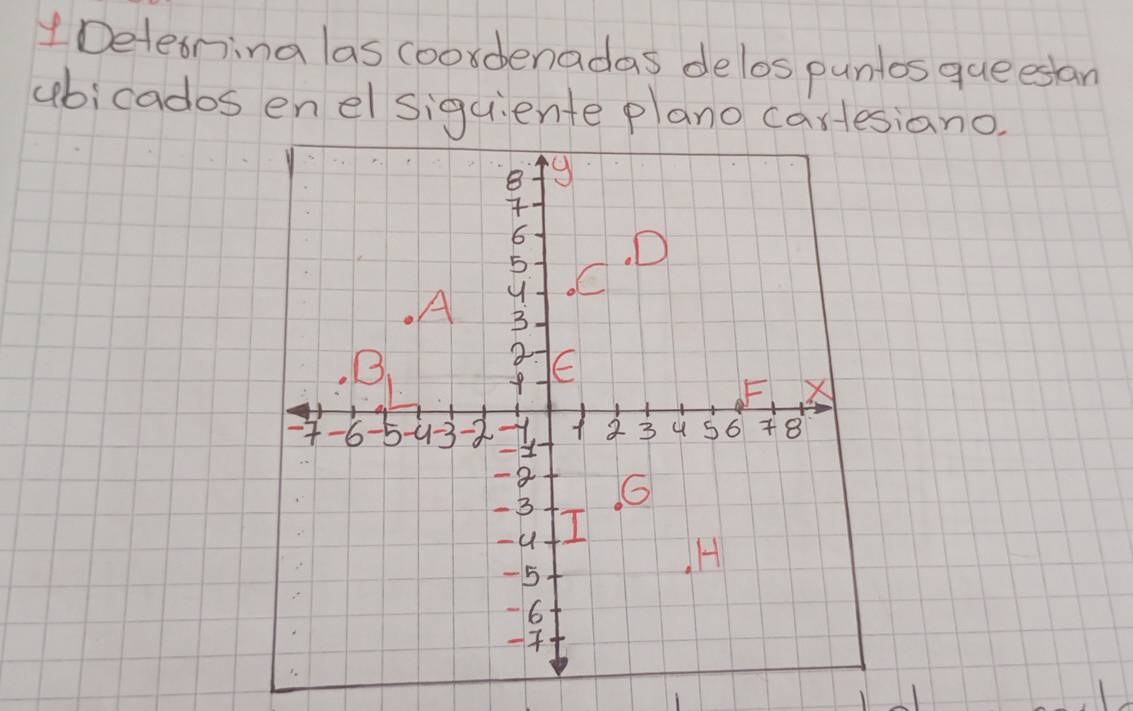 1 Determina las coordenadas de los puntos que estan
ubicados en el siguiente plano cartesiano.
y
8
7
6
5 .D
4 .C
.A
3
2 E
.B
1
L F X
-7 -6 -5 -4 -3 -2 -1 1 2 3 4 5 6 7 8
-1
-2
.G
-3
I
-4
.H
-5
-6
-7